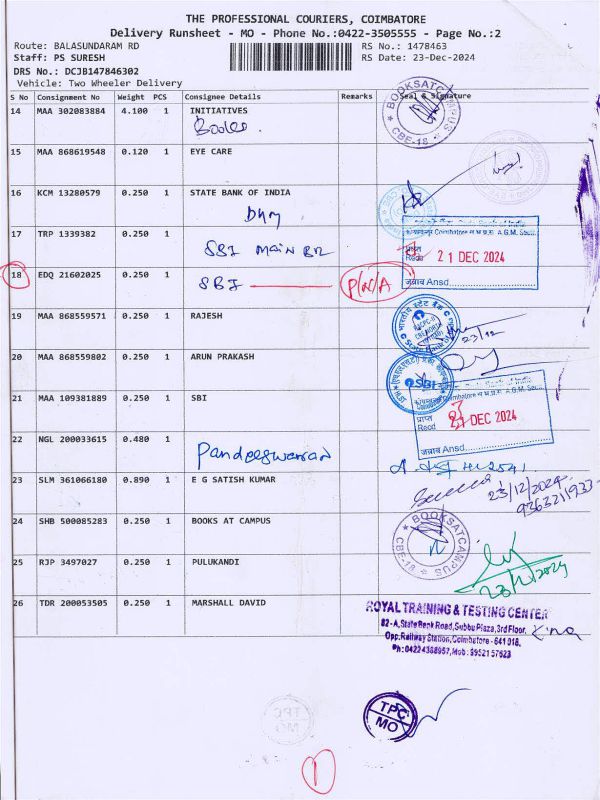 THE PROFESSIONAL COURIERS, COIMBATORE
Delivery Runsheet - MO - Phone No.:0422-3505555 - Page No.:2
Route: BALASUNDARAM RD
RS No.: 1478463
Staff: PS SURESH
RS Date: 23-Dec-2024
DRS No.: DCJB147846302
Vehicle: Two Wheeler Delivery
S No Consignment No Weight PCS Consignee Details Remarks Seal & Signature
14 MAA 302083884 4.100 1 INITIATIVES
BOOKSATCAMPUS
CBE-18
15 MAA 868619548 0.120 1 EYE CARE
16 KCM 13280579 0.250 1 STATE BANK OF INDIA
17 TRP 1339382 0.250 1
SBI MAIN BR
Coimbatore
A.G.M. Sectt.
Recd 21 DEC 2024
जवाब Ansd.
18 EDQ 21602025 0.250 1
SBI P/N/A
19 MAA 868559571 0.250 1 RAJESH
भारतीय स्टेट बैंक
23/12
20 MAA 868559802 0.250 1 ARUN PRAKASH
21 MAA 109381889 0.250 1 SBI
SBI
State Bank of India
Coimbatore
A.G.M. Sectt.
प्राप्त
Recd
DEC 2024
जवाब Ansd.
22 NGL 200033615 0.480 1
Pandeeswaran
2541
23 SLM 361066180 0.890 1 E G SATISH KUMAR
23/12/2024
24 SHB 500085283 0.250 1 BOOKS AT CAMPUS
BOOKSATCAMPUS
CBE-18
25 RJP 3497027 0.250 1 PULUKANDI
23/12/2024
26 TDR 200053505 0.250 1 MARSHALL DAVID
ROYAL TRAINING & TESTING CENTER
82-A, State Bank Road, Subbu Plaza, 3rd Floor,
Opp. Railway Station, Coimbatore - 641 018.
Ph: 0422 4388957, Mob: 99521 57623
TPC
MO
TPC
MO
1